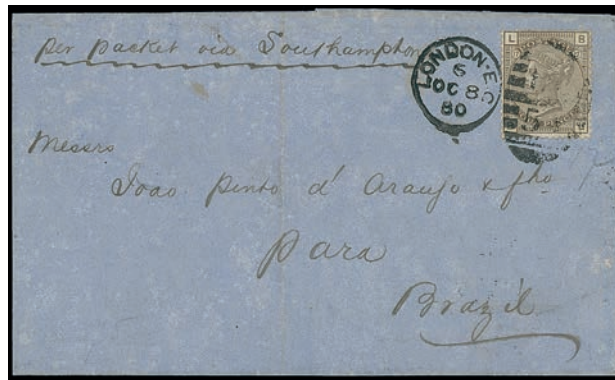 per packet via Southampton
LONDON·E.C
6
OC 8
80
L B
5
Messrs
Joao Pinto d' Araujo & fho
Para
Brazil